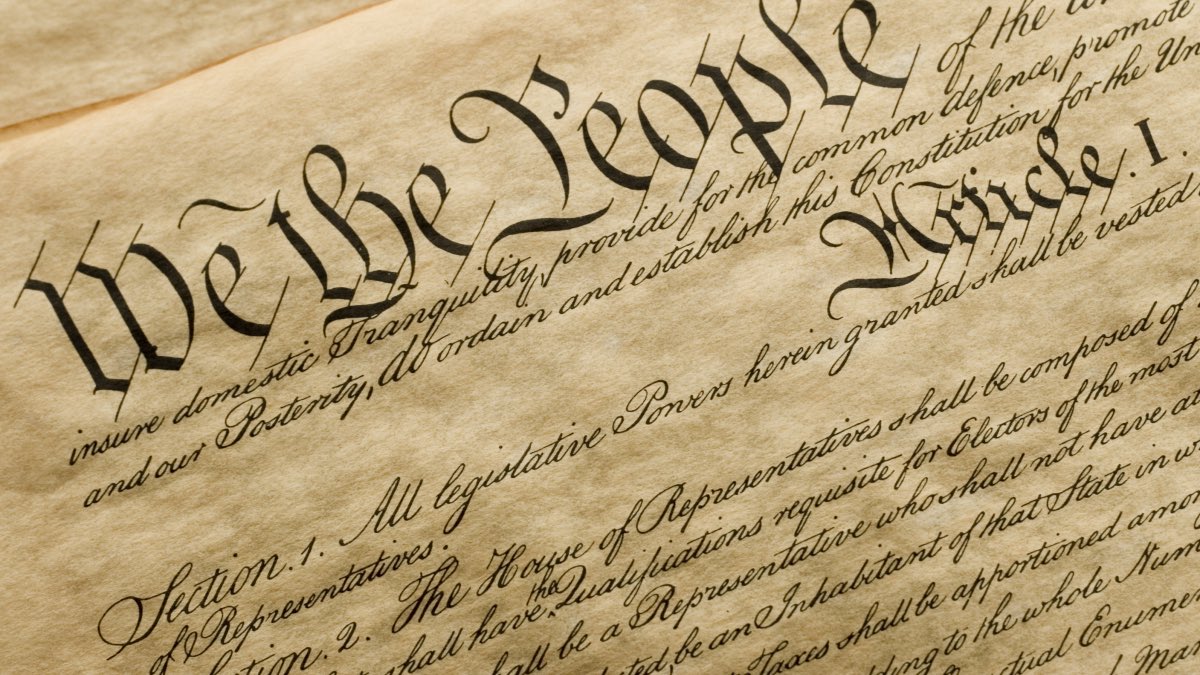 We the People of the
insure domestic Tranquility, provide for the common defence, promote
and our Posterity, do ordain and establish this Constitution for the Un
Article. I.
Section. 1. All legislative Powers herein granted shall be vested
of Representatives.
ction. 2. The House of Representatives shall be composed of
shall have the Qualifications requisite for Electors of the most
all be a Representative who shall not have at
ted, be an Inhabitant of that State in w
Taxes shall be apportioned amon
ding to the whole Num
ctual Enumer
Ma